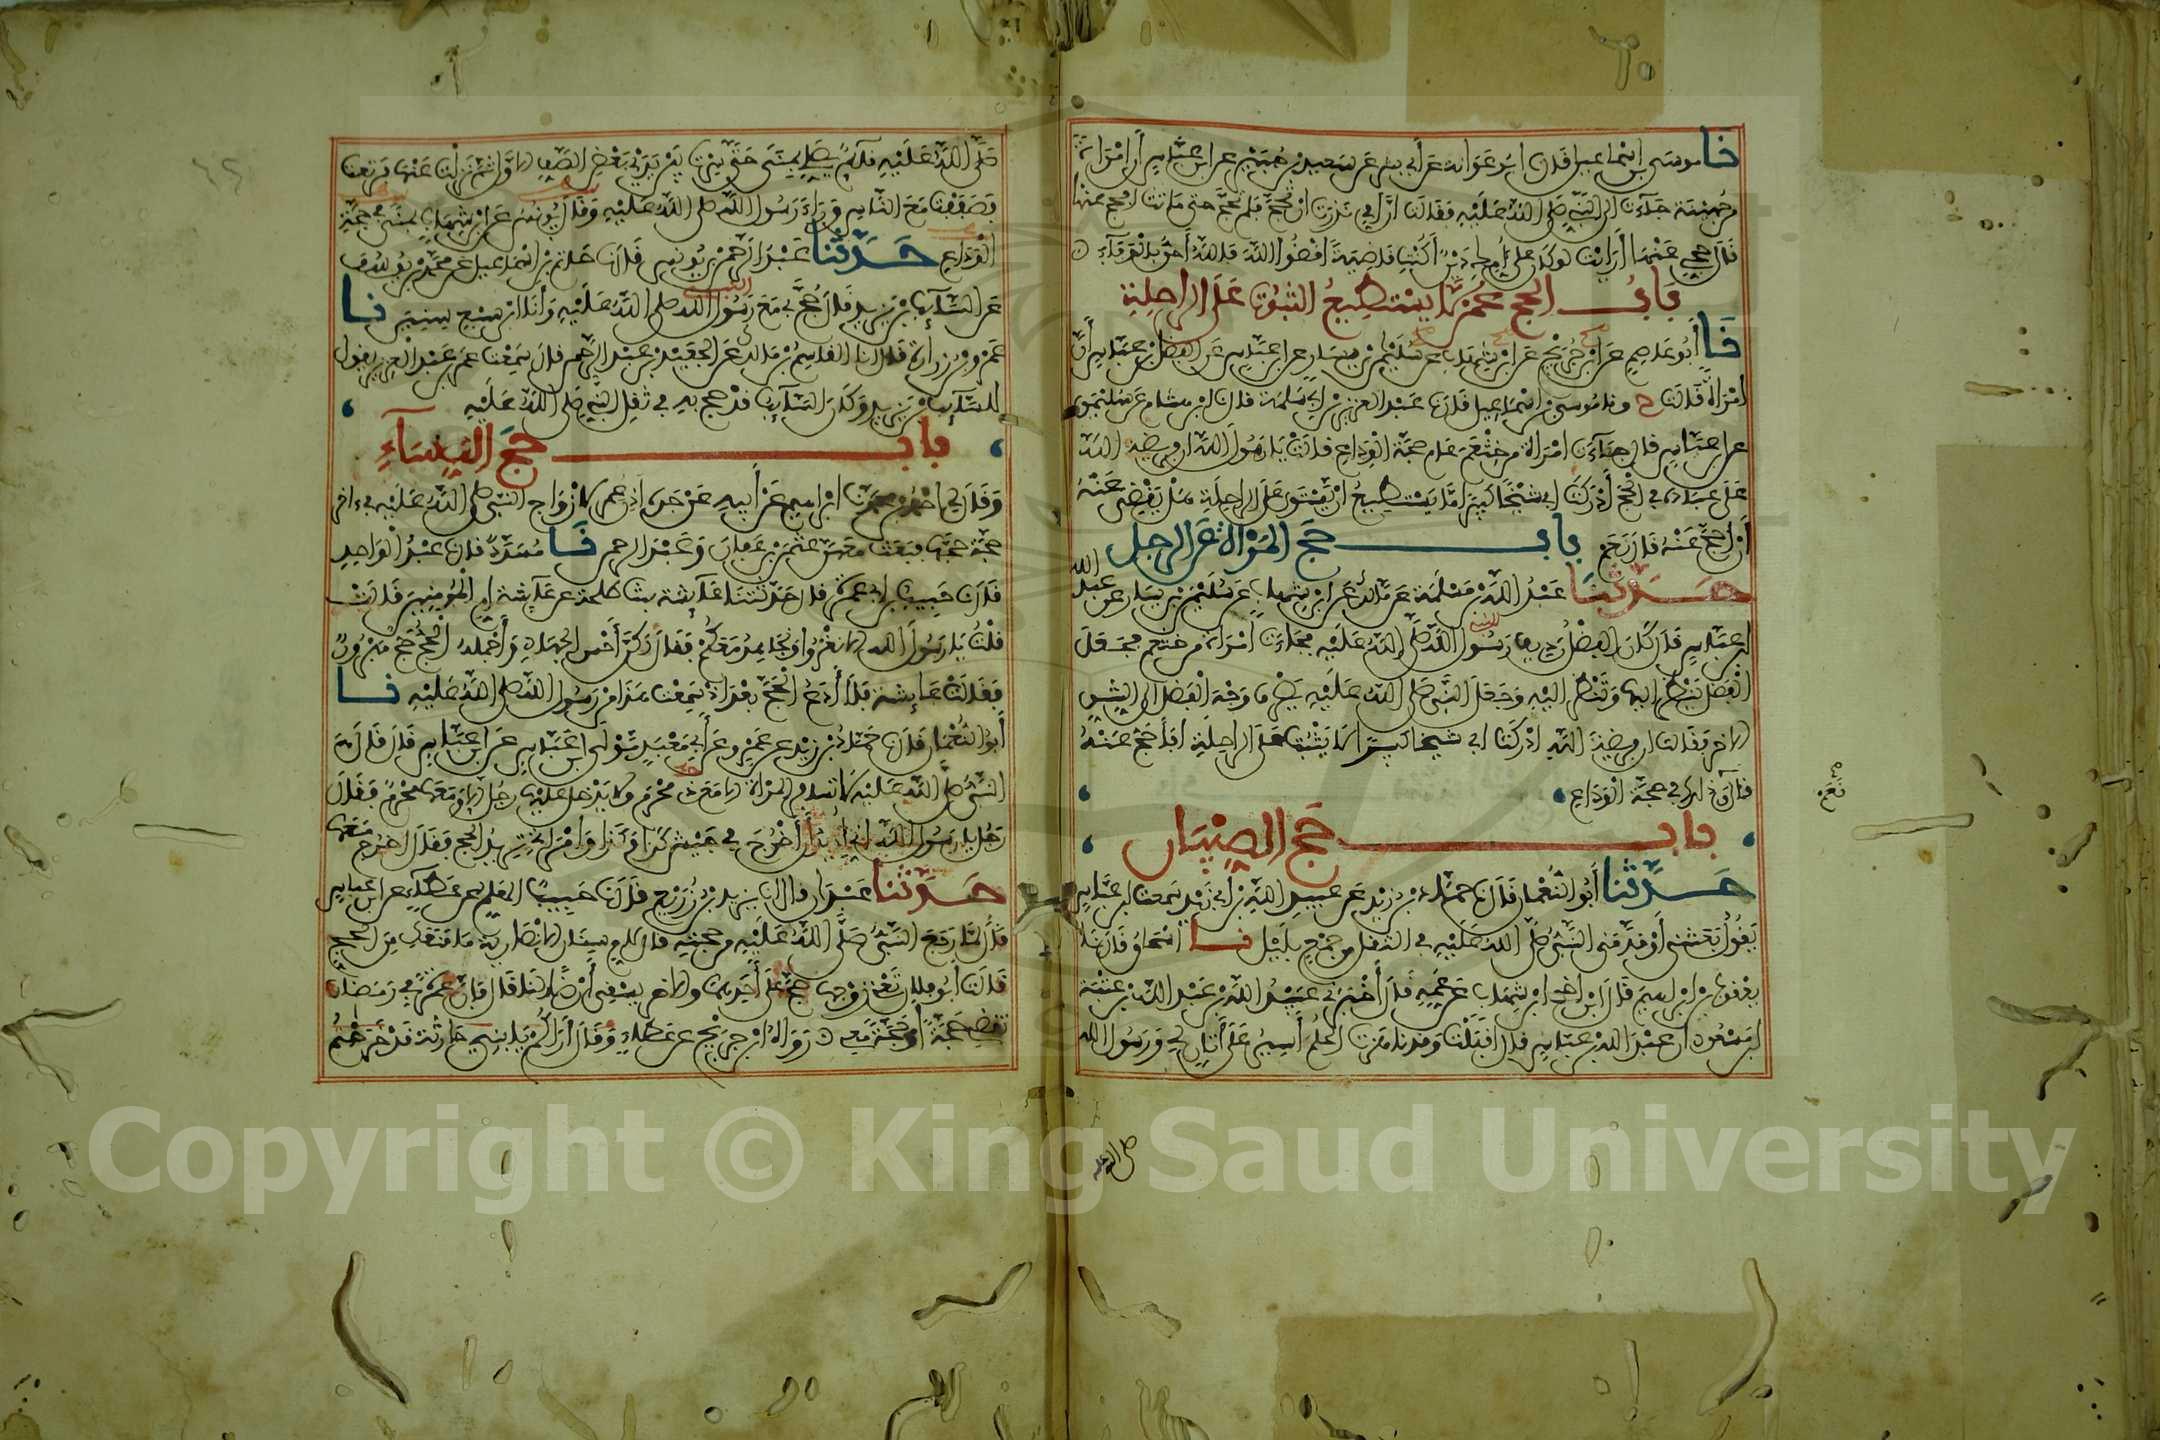 نا موسى بن اسماعيل قال نا ابو عوانة عن أبي بشر عن سعيد بن جبير عن ابن عباس أن امرأة
من جهينة جاءت الى النبي صلى الله عليه فقالت ان أمي نذرت ان تحج فلم تحج حتى ماتت افأحج عنها
قال حجي عنها أرأيت لو كان على أمك دين أكنت قاضية اقضوا الله فالله أحق بالوفاء
باب الحج عمن لا يستطيع الثبوت على الراحلة
نا أبو عاصم عن ابن جريج عن ابن شهاب عن سليمن بن يسار عن ابن عباس عن الفضل بن عباس أن
امرأة قالت ح ونا موسى بن اسماعيل قال نا عبد العزيز بن أبي سلمة قال نا ابن شهاب عن سليمن
عن ابن عباس قال جاءت امرأة من خثعم عام حجة الوداع قالت يا رسول الله ان فريضة الله
على عباده في الحج أدركت أبي شيخا كبيرا لا يستطيع ان يستوي على الراحلة فهل يقضي عنه
أن أحج عنه قال نعم باب حج المرأة عن الرجل
حدثنا عبد الله بن مسلمة عن مالك عن ابن شهاب عن سليمن بن يسار عن عبد الله
ابن عباس قال كان الفضل رديف رسول الله صلى الله عليه فجاءت امرأة من خثعم فجعل
الفضل ينظر إليها وتنظر اليه وجعل النبي صلى الله عليه يصرف وجه الفضل الى الشق
الاخر فقالت ان فريضة الله ادركت أبي شيخا كبيرا لا يثبت على الراحلة أفأحج عنه
قال نعم وذلك في حجة الوداع
نعم
باب حج الصبيان
حدثنا أبو النعمان قال نا حماد بن زيد عن عبيد الله بن أبي يزيد سمعت ابن عباس
يقول بعثني أو قدمني النبي صلى الله عليه في الثقل من جمع بليل نا اسحاق قال نا
يعقوب بن ابراهيم قال نا ابن اخي ابن شهاب عن عمه قال أخبرني عبيد الله بن عبد الله بن عتبة
ابن مسعود ان عبد الله بن عباس قال اقبلت وقد ناهزت الحلم أسير على أتان لي ورسول الله
صلى الله عليه
صلى الله عليه قائم يصلي بمنى حتى سرت بين يدي بعض الصف الاول ثم نزلت عنها فرتعت
فصففت مع الناس وراء رسول الله صلى الله عليه وقال يونس عن ابن شهاب بمنى في حجة
الوداع حدثنا عبد الرحمن بن يونس قال نا حاتم بن اسماعيل عن محمد بن يوسف
عن السائب بن يزيد قال حج بي مع رسول الله صلى الله عليه وأنا ابن سبع سنين نا
عمرو بن زرارة قال نا القاسم بن مالك عن الجعيد بن عبد الرحمن قال سمعت عمر بن عبد العزيز يقول
للسائب بن يزيد وكان السائب قد حج به في ثقل النبي صلى الله عليه
باب حج النساء
وقال لي احمد بن محمد نا ابراهيم عن أبيه عن جده اذن عمر لازواج النبي صلى الله عليه في اخر
حجة حجها فبعث معهن عثمن بن عفان وعبد الرحمن نا مسدد قال نا عبد الواحد
قال نا حبيب بن ابي عمرة قال حدثتنا عائشة بنت طلحة عن عائشة ام المؤمنين قالت
قلت يا رسول الله الا نغزوا ونجاهد معكم فقال لكن أحسن الجهاد وأجمله الحج حج مبرور
فقالت عائشة فلا أدع الحج بعد اذ سمعت هذا من رسول الله صلى الله عليه نا
أبو النعمان قال نا حماد بن زيد عن عمرو عن أبي معبد مولى ابن عباس عن ابن عباس قال قال
النبي صلى الله عليه لا تسافر المرأة الا مع ذي محرم ولا يدخل عليها رجل الا ومعها محرم فقال
رجل يا رسول الله اني أريد أن أخرج في جيش كذا وكذا وامرأتي تريد الحج فقال اخرج معها
حدثنا عبدان قال نا يزيد بن زريع قال نا حبيب المعلم عن عطاء عن ابن عباس
قال لما رجع النبي صلى الله عليه من حجته قال لام سنان الانصارية ما منعك من الحج
قالت أبو فلان تعني زوجها حج على أحدهما والاخر يسقي أرضا لنا قال فان عمرة في رمضان
تقضي حجة أو حجة معي رواه ابن جريج عن عطاء